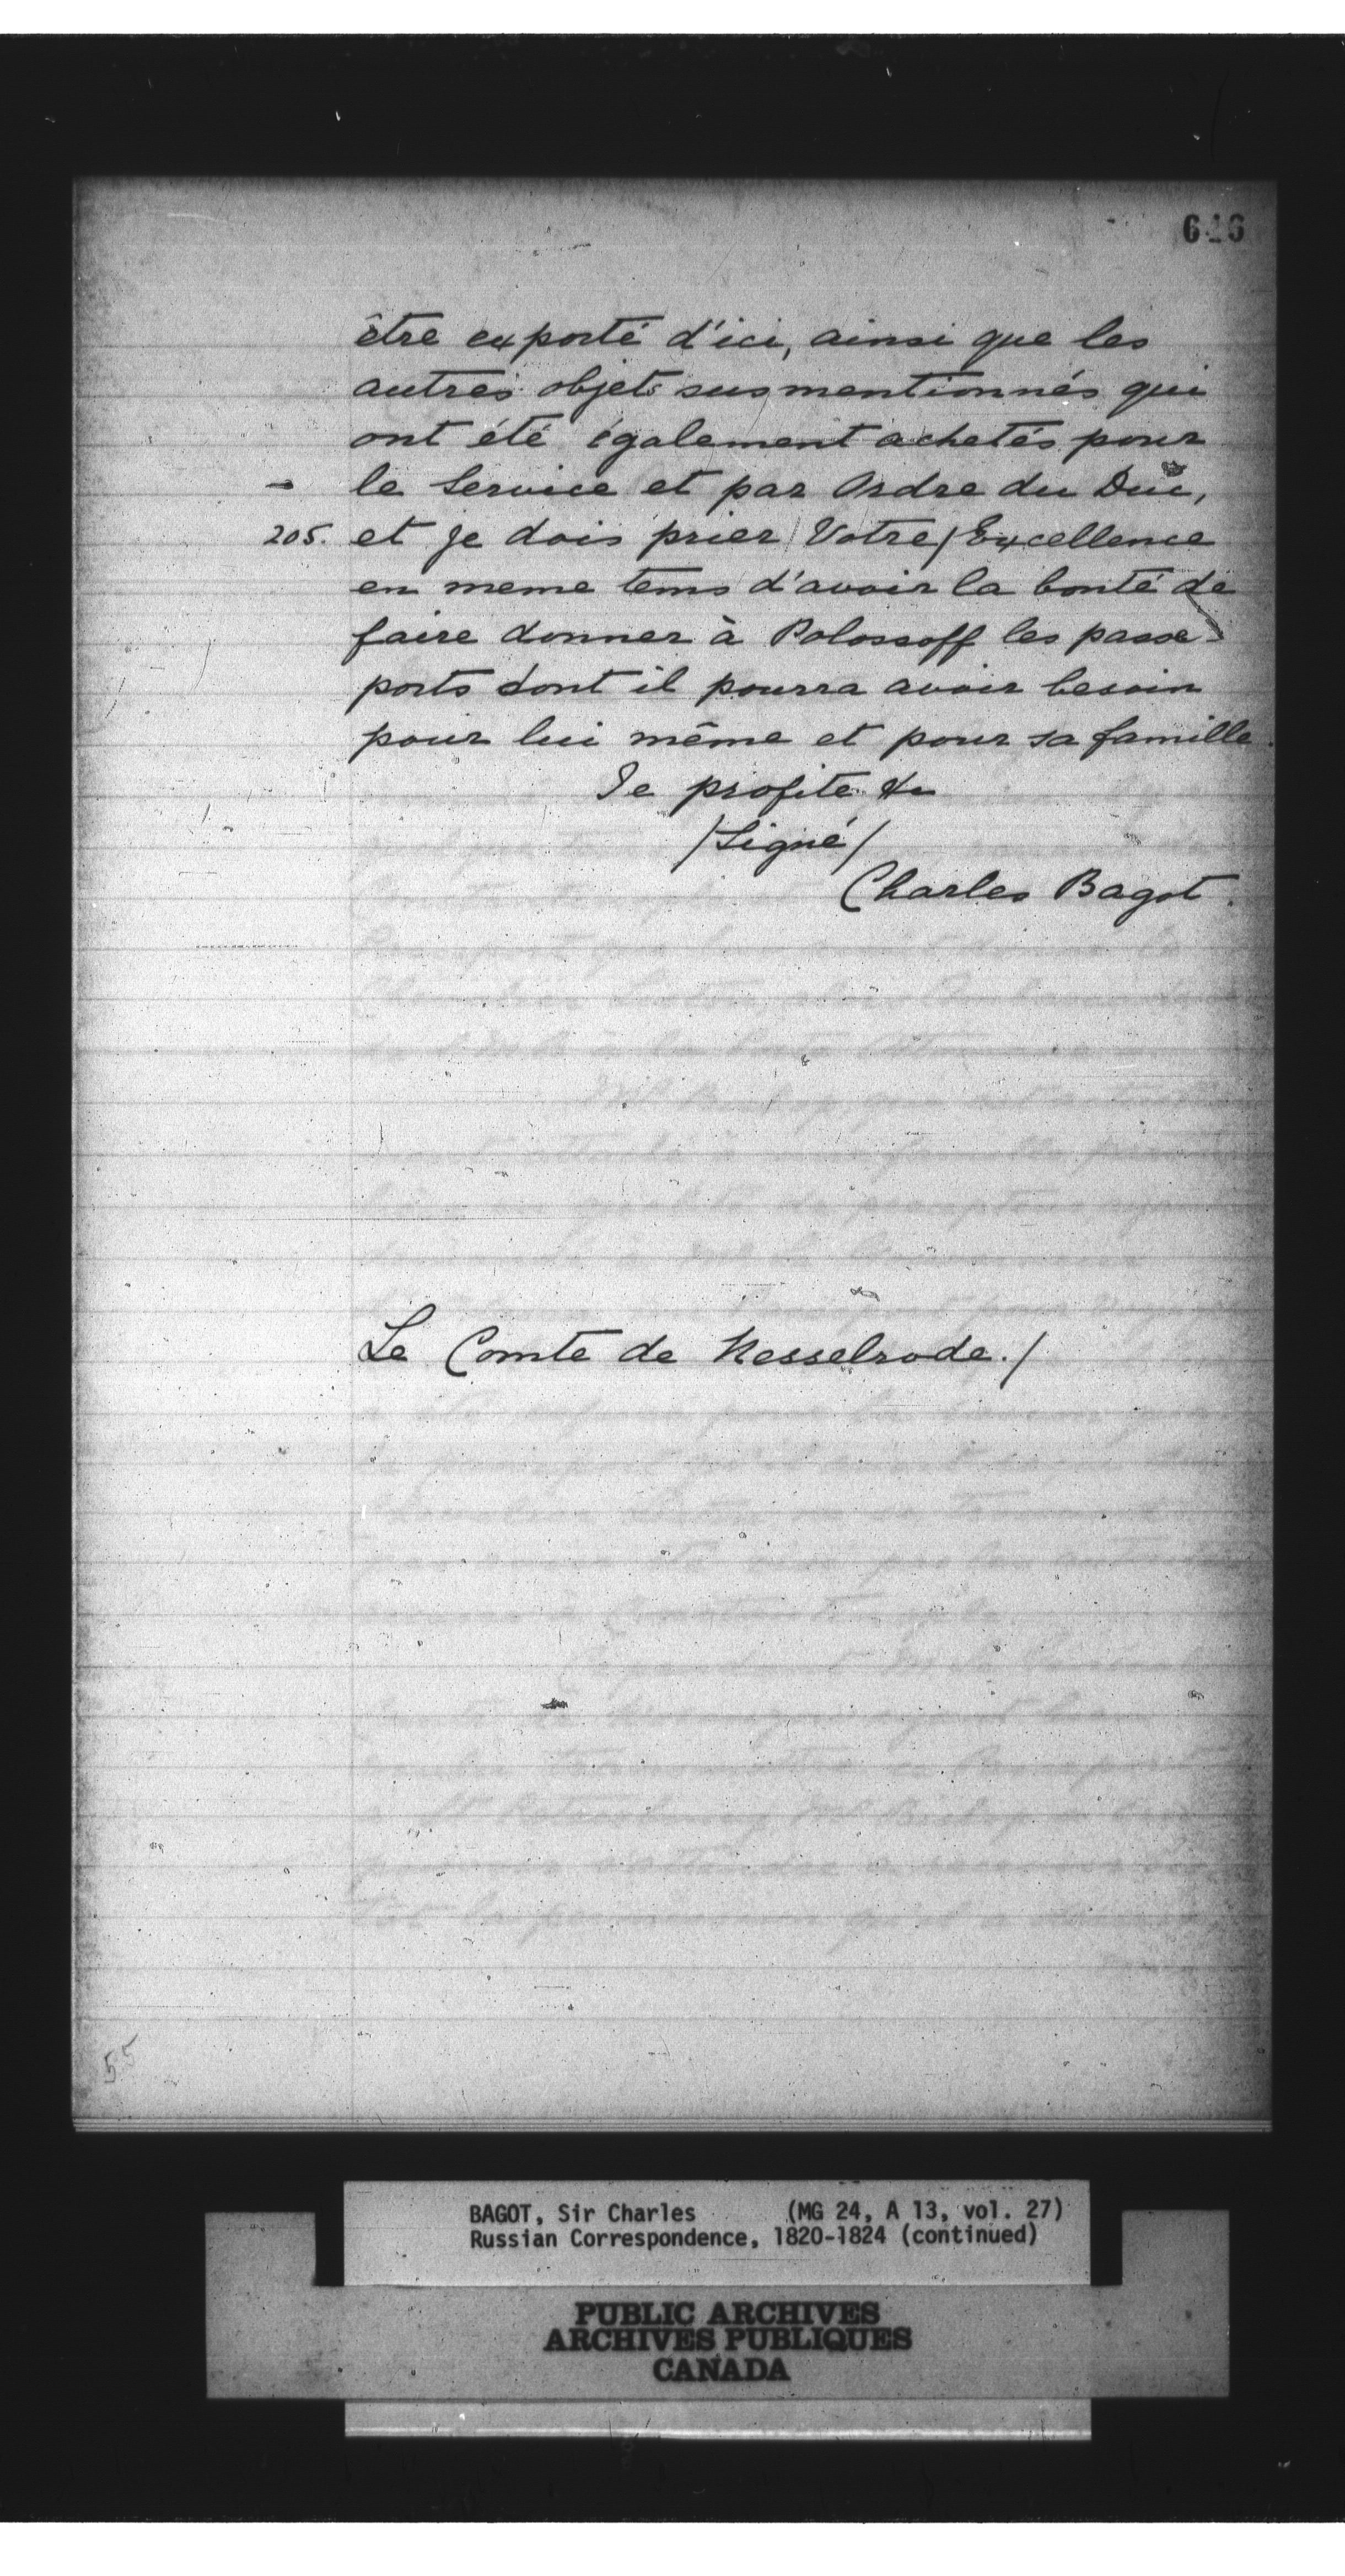 être exporté d'ici, ainsi que les
autres objets susmentionnés qui
ont été également achetés pour
le Service et par Ordre du Duc,
205. et je dois prier / Votre / Excellence
en meme tems d'avoir la bonté de
faire donner à Polossoff les passe-
ports dont il pourra avoir besoin
pour lui même et pour sa famille.
Je profite &c
/Signé/
Charles Bagot.
Le Comte de Nesselrode./
55
BAGOT, Sir Charles (MG 24, A 13, vol. 27)
Russian Correspondence, 1820-1824 (continued)
PUBLIC ARCHIVES
ARCHIVES PUBLIQUES
CANADA